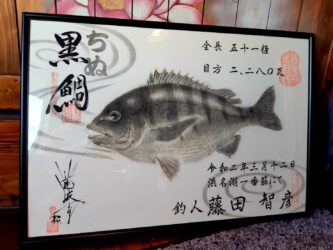 全長 五十一糎
目方 二、二八〇瓦
ちぬ
黒鯛
令和二年三月十二日
浜名湖一番鉄にて
釣人 藤田 智彦
松